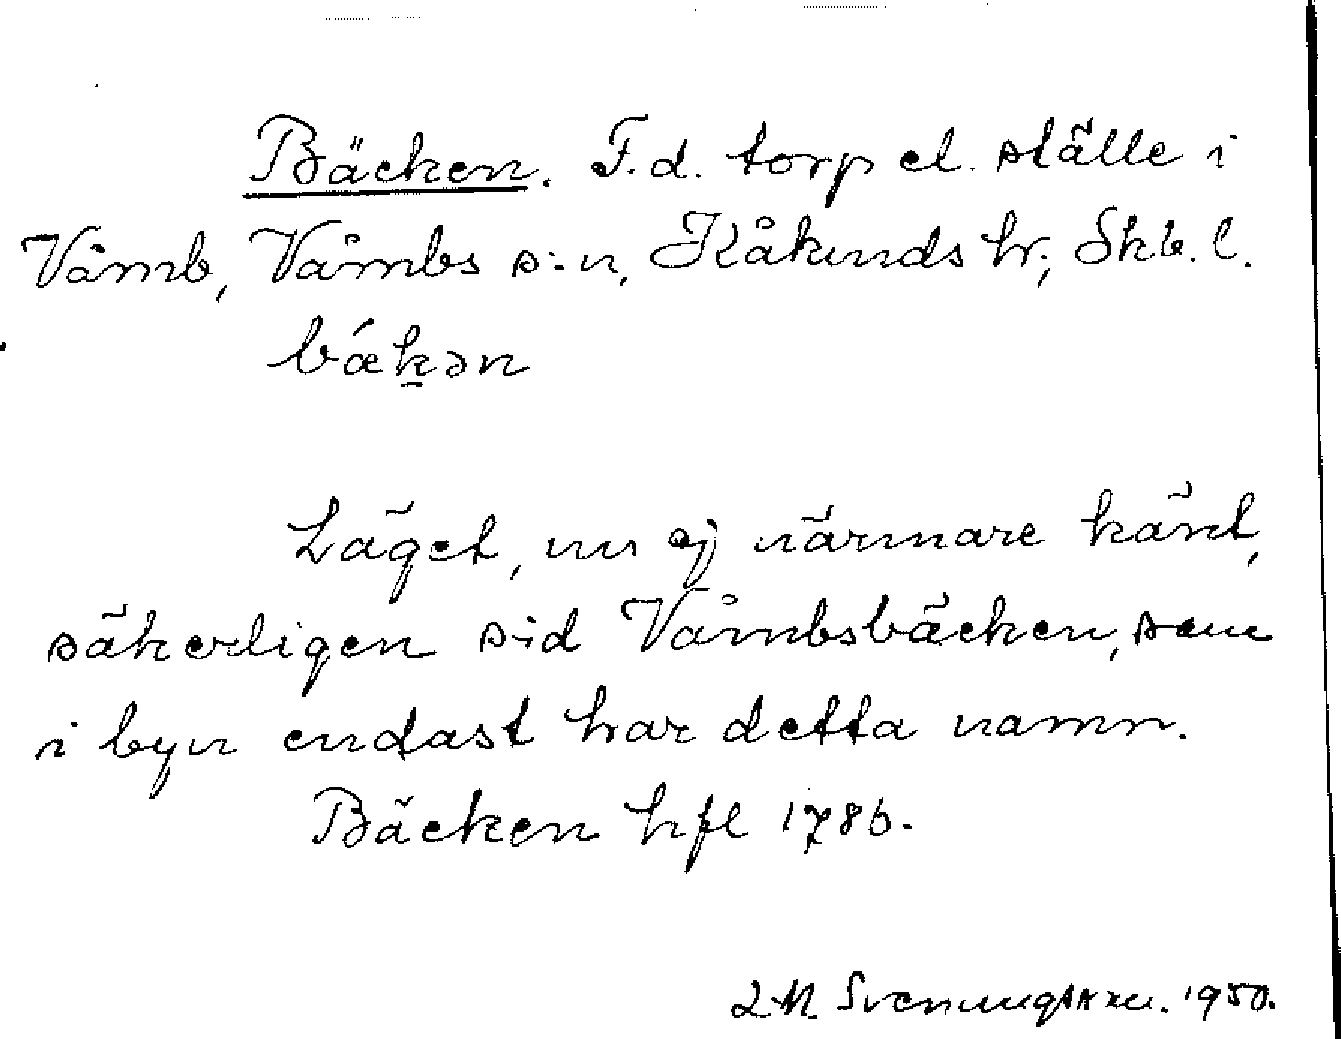 Bäcken. F.d. torp el. ställe i
Våmb, Våmbs s:n, Kåkinds hr, Skb. l.
bǽk̠ən
Läget, nu ej närmare känt,
säkerligen vid Våmbsbäcken, som
i byn endast har detta namn.
Bäcken hfl 1786.
L.M. Svenungsson. 1950.